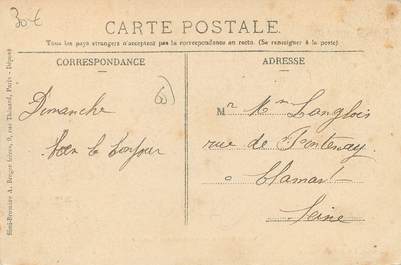 30€
CARTE POSTALE.
Tous les pays étrangers n'acceptent pas la correspondance au recto. (Se renseigner à la poste).
CORRESPONDANCE
ADRESSE
Dimanche
bon le bonjour
60
Mr Mme Langlois
rue de Fontenay
à Clamart
Seine
Simi-Bromure A. Breger frères, 9, rue Thénard, Paris - Déposé